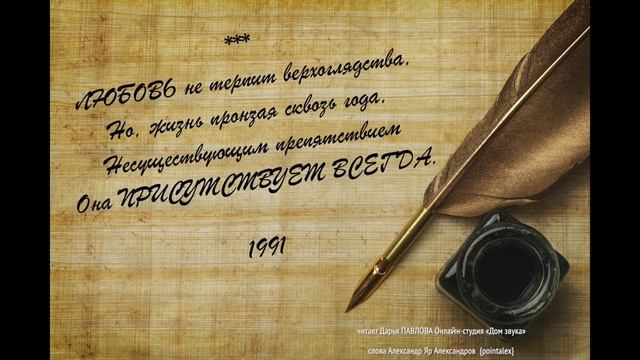 ***
ЛЮБОВЬ не терпит верхоглядства,
Но, жизнь пронзая сквозь года,
Несуществующим препятствием
Она ПРИСУТСТВУЕТ ВСЕГДА.
1991
читает Дарья ПАВЛОВА Онлайн-студия «Дом звука»
слова Александр Яр Александров (pointalex)